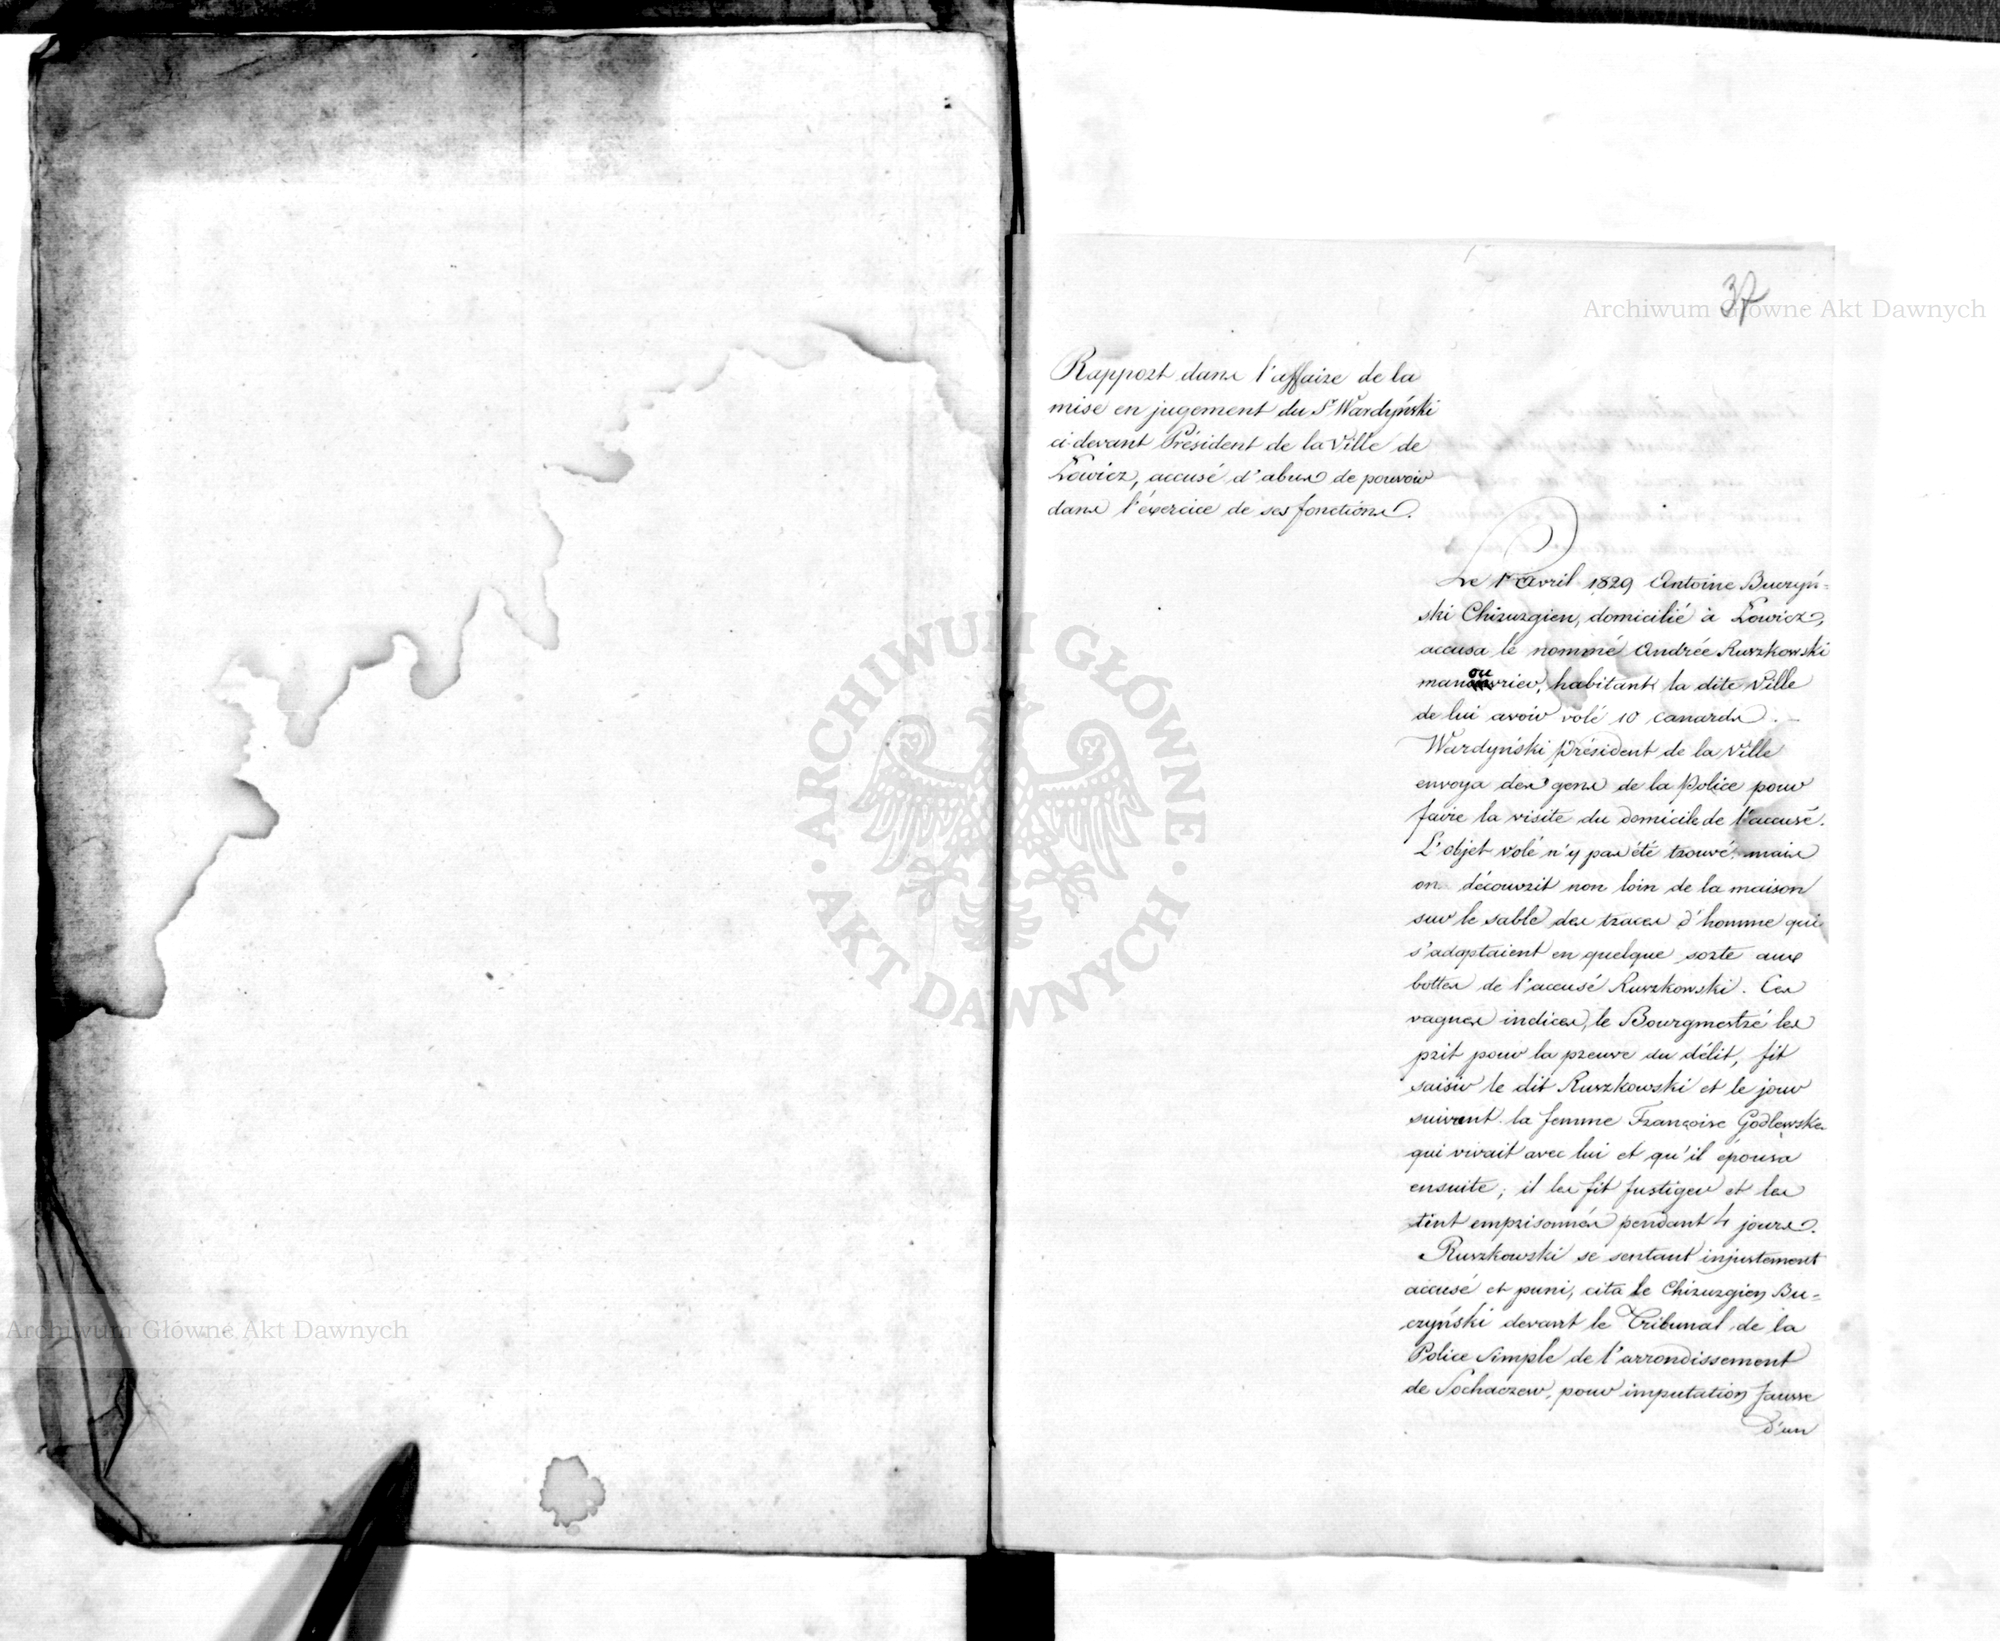 37
Archiwum Główne Akt Dawnych
Rapport dans l'affaire de la
mise en jugement du Sr Wardyński
ci-devant Président de la Ville de
Łowicz, accusé d'abus de pouvoir
dans l'éxercice de ses fonctions.
Le 1r Avril 1829 Antoine Buczyń-
ski Chirurgien, domicilié à Łowicz,
accusa le nommé Andrée Ruszkowski
manouvrier, habitant la dite Ville
de lui avoir volé 10 canards. -
Wardyński Président de la Ville
envoya des gens de la Police pour
faire la visite du domicile de l'accusé.
L'objet volé n'y pas été trouvé. mais
on découvrit non loin de la maison
sur le sable des traces d'homme qui
s'adaptaient en quelque sorte aux
bottes de l'accusé Ruszkowski. Ces
vagues indices, le Bourgmestre les
prit pour la preuve du délit, fit
saisir le dit Ruszkowski et le jour
suivant la femme Françoise Godlewska
qui vivait avec lui et qu'il épousa
ensuite; il les fit fustiger et les
tint emprisonnés pendant 4 jours.
Ruszkowski se sentant injustement
accusé et puni, cita le Chirurgien Bu-
czyński devant le Tribunal de la
Police Simple de l'arrondissement
de Sochaczew, pour imputation fausse
d'un
ARCHIWUM GŁÓWNE
AKT DAWNYCH
Archiwum Główne Akt Dawnych